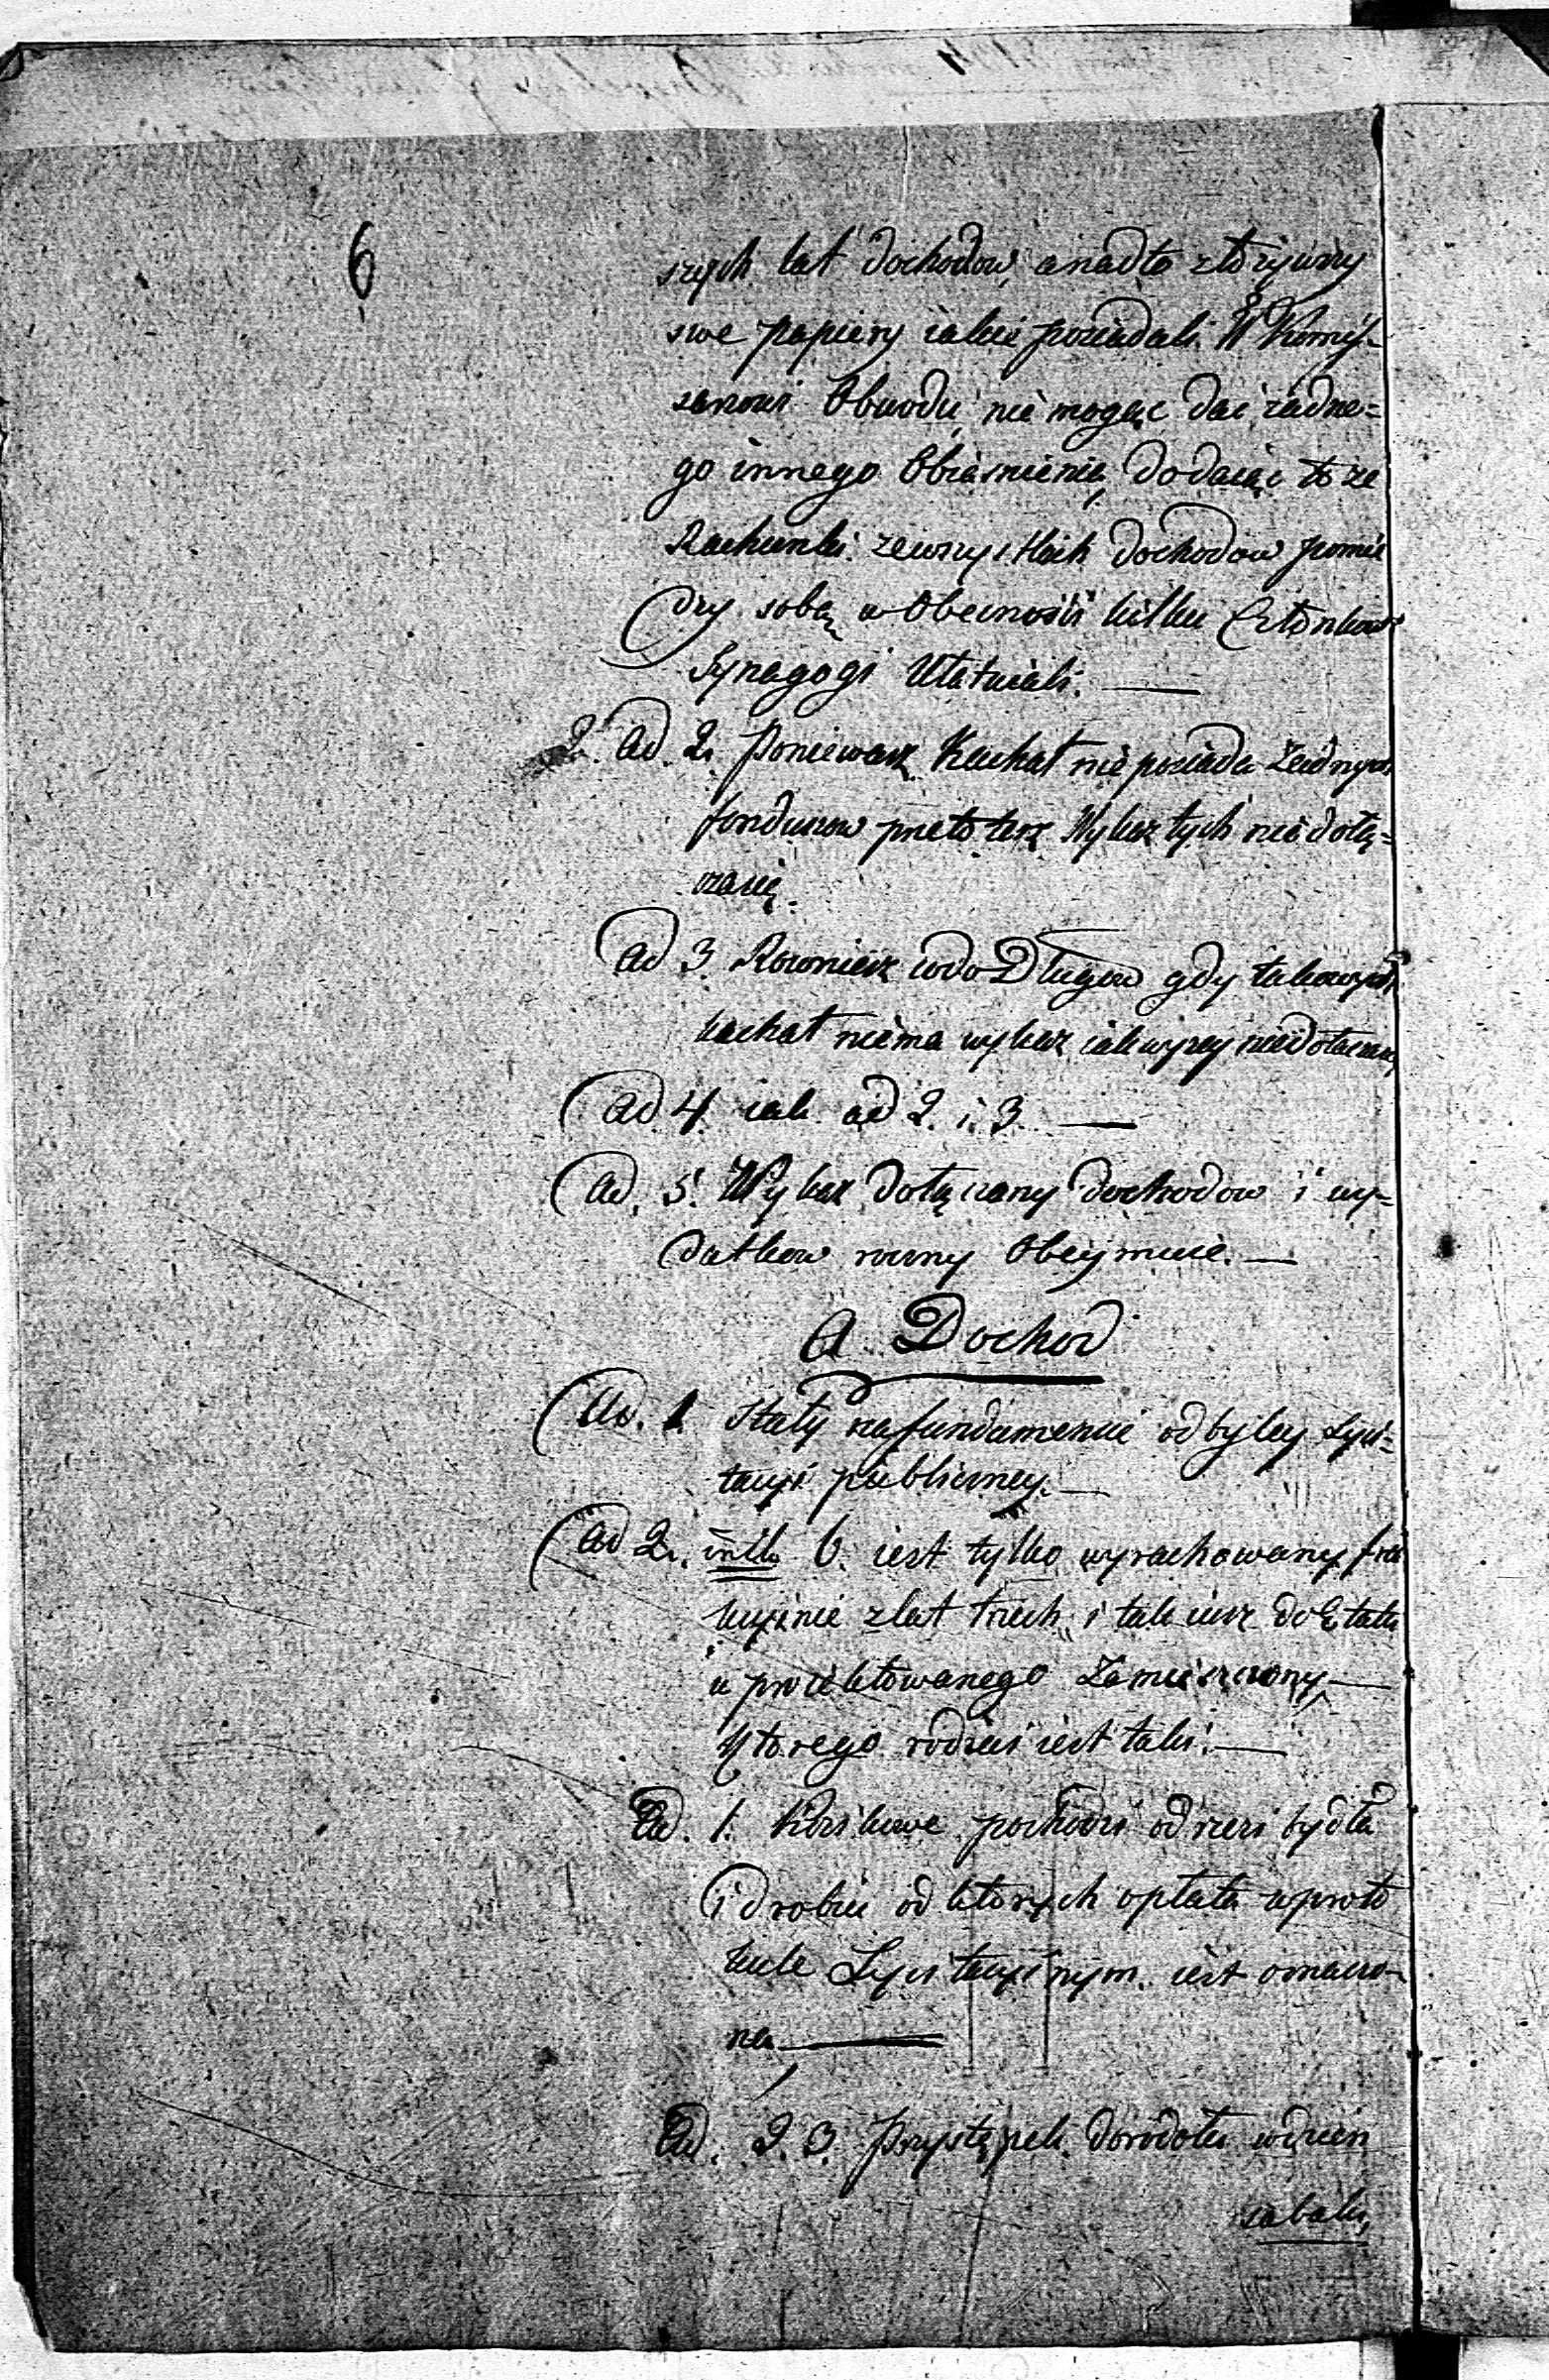 6
szych lat dochodow, a nadto złożywszy
swe papiery iakie posiadali W Kommis-
sarzowi Obwodu, nie mogąc dać żadne=
go innego Obiasnienia, dodaiąc to że
Rachunki ze wszystkich dochodow pomię
dzy sobą w Obecności kilku Członkow
Synagogi Ułatwiali. —
2. Ad. 2. Ponieważ Kachał nie posiada żadnych
funduszow przeto też Wykaz tych nie dołą=
cza się.
Ad 3. Rownież co do Długow gdy takowych
kachał nie ma wykaz iak wyzey nie dołacza się
Ad 4. iak ad 2. i 3. —
Ad. 5. Wykaz dołączony dochodow i wy=
datkow roczny Obeymuie. —
A. Dochod
Ad. 1. Stały na fundamencie odbytey Lyci=
tacyi publiczney. —
Ad 2. lit. b. iest tylko wyrachowany frak
cyinie z lat trzech, i takież do Etatu
u proiektowanego zamieszczony —
Ktorego rodzai iest taki. —
Ad. 1. Koszerne pochodzi od rzezi bydła
i drobiu od ktorych opłata w proto
kule Lycitacyinym iest oznaczo-
na —
Ad. 2. 3. Przystępek do rodału w dzien
sabatu,